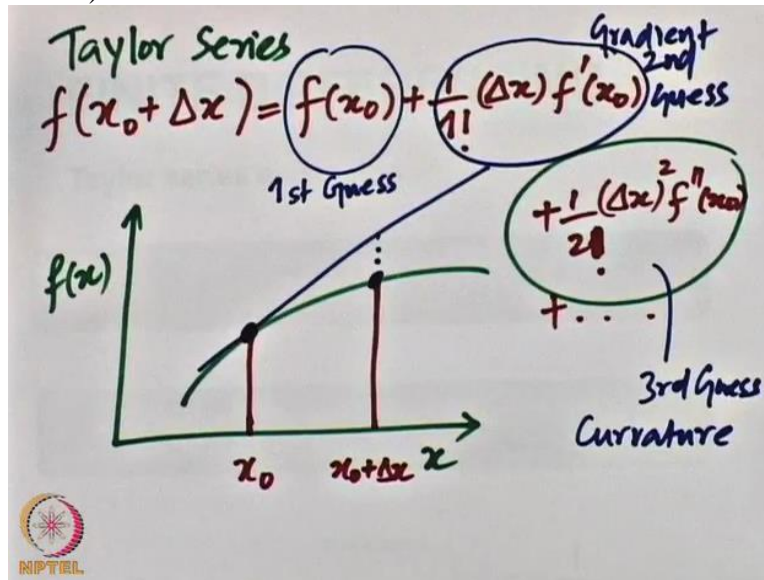 Taylor Series
f(x₀ + Δx) = f(x₀) + 1/1! (Δx) f'(x₀)
Gradient
2nd
Guess
1st Guess
+ 1/2! (Δx)² f''(x₀)
+ ....
f(x)
3rd Guess
Currature
x₀ x₀+Δx x
NPTEL